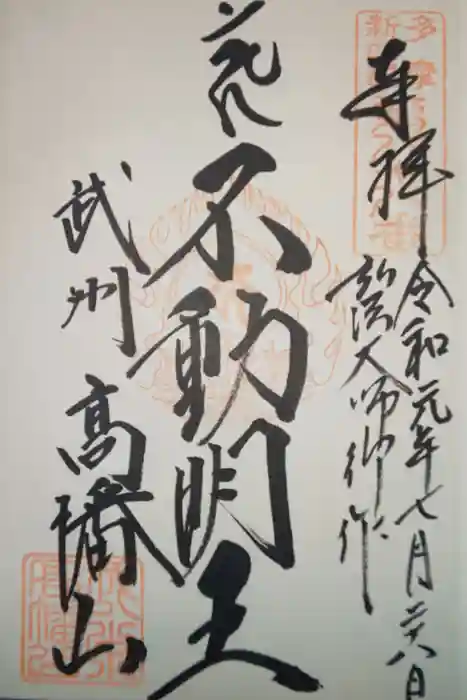 奉拝
令和元年七月廿八日
弘法大師御作
不動明王
武州
高幡山